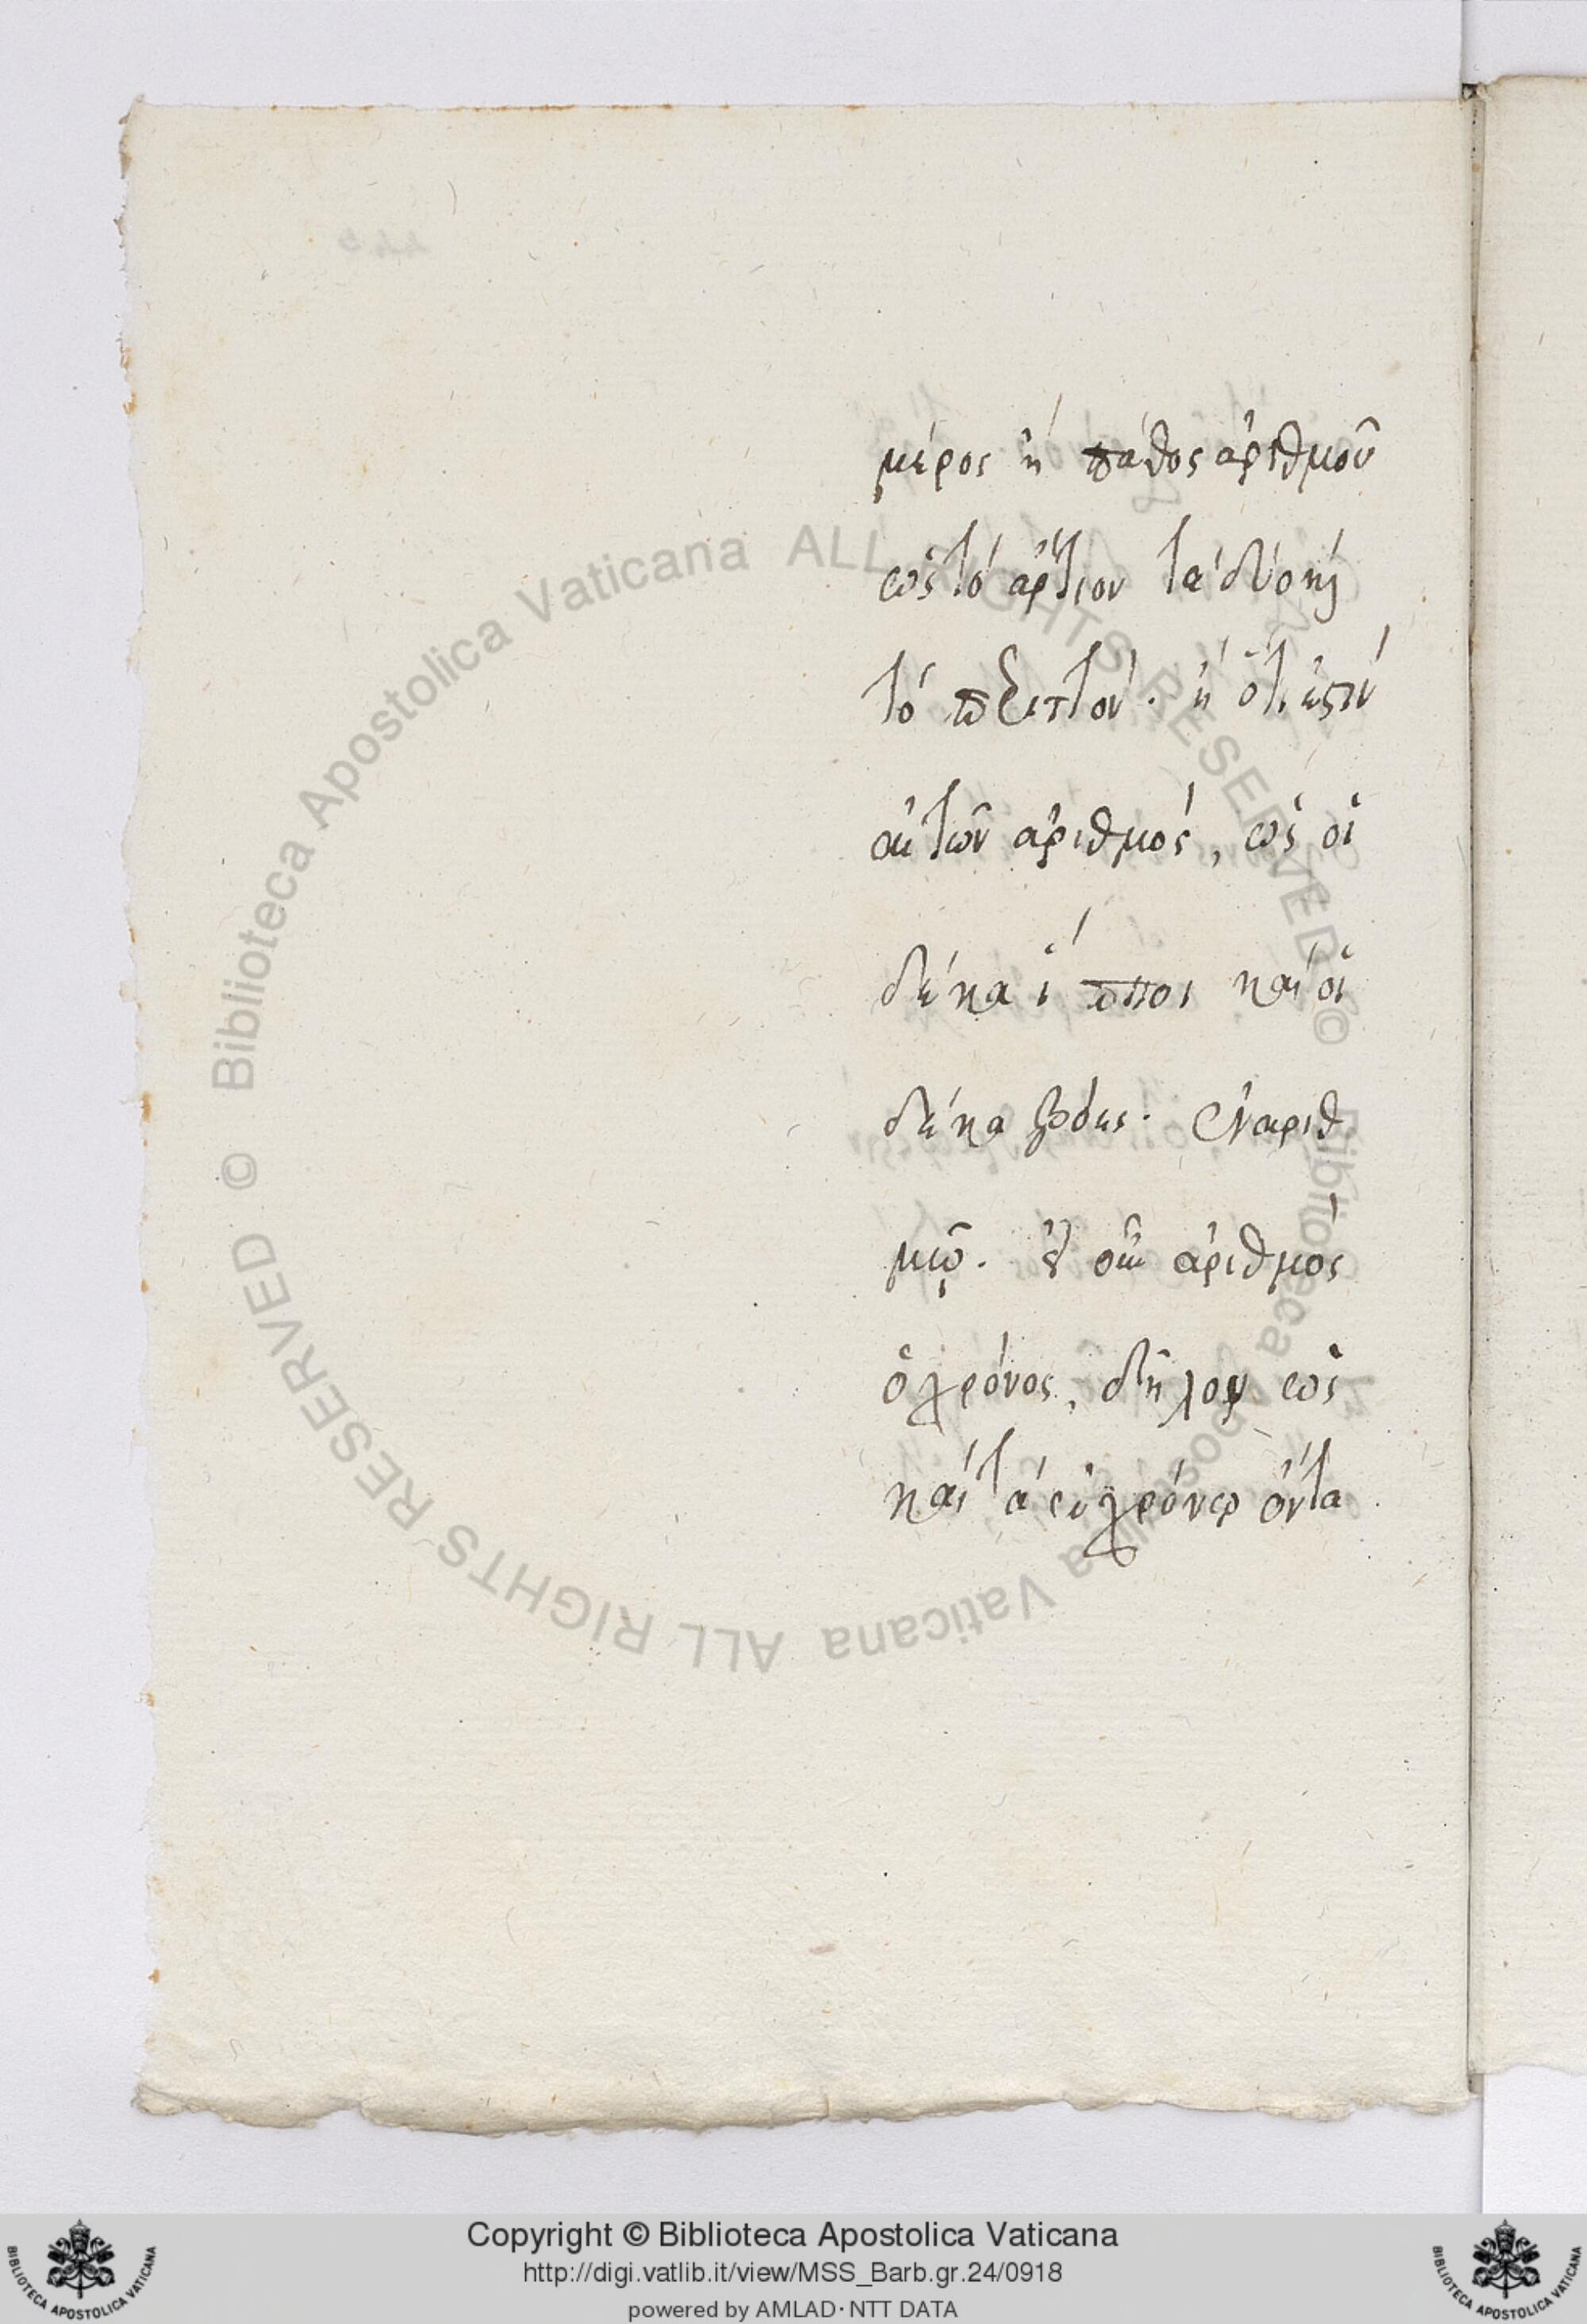 μέρος ἢ πάθος ἀριθμοῦ
ὡς τὸ ἄρτιον τὰ δύο καὶ
τὸ περιττόν. ἢ ὅτι ἐστὶν
αὐτῶν ἀριθμός, ὡς οἱ
δέκα ἵπποι καὶ οἱ
δέκα βόες. ἐν ἀριθ
μῷ. εἰ οὖν ἀριθμὸς
ὁ χρόνος, δῆλον ὡς
καὶ τὰ ἐν χρόνῳ ὄντα
© Biblioteca Apostolica Vaticana ALL RIGHTS RESERVED © Biblioteca Apostolica Vaticana ALL RIGHTS RESERVED
Copyright © Biblioteca Apostolica Vaticana
http://digi.vatlib.it/view/MSS_Barb.gr.24/0918
powered by AMLAD·NTT DATA
BIBLIOTECA APOSTOLICA VATICANA
BIBLIOTECA APOSTOLICA VATICANA